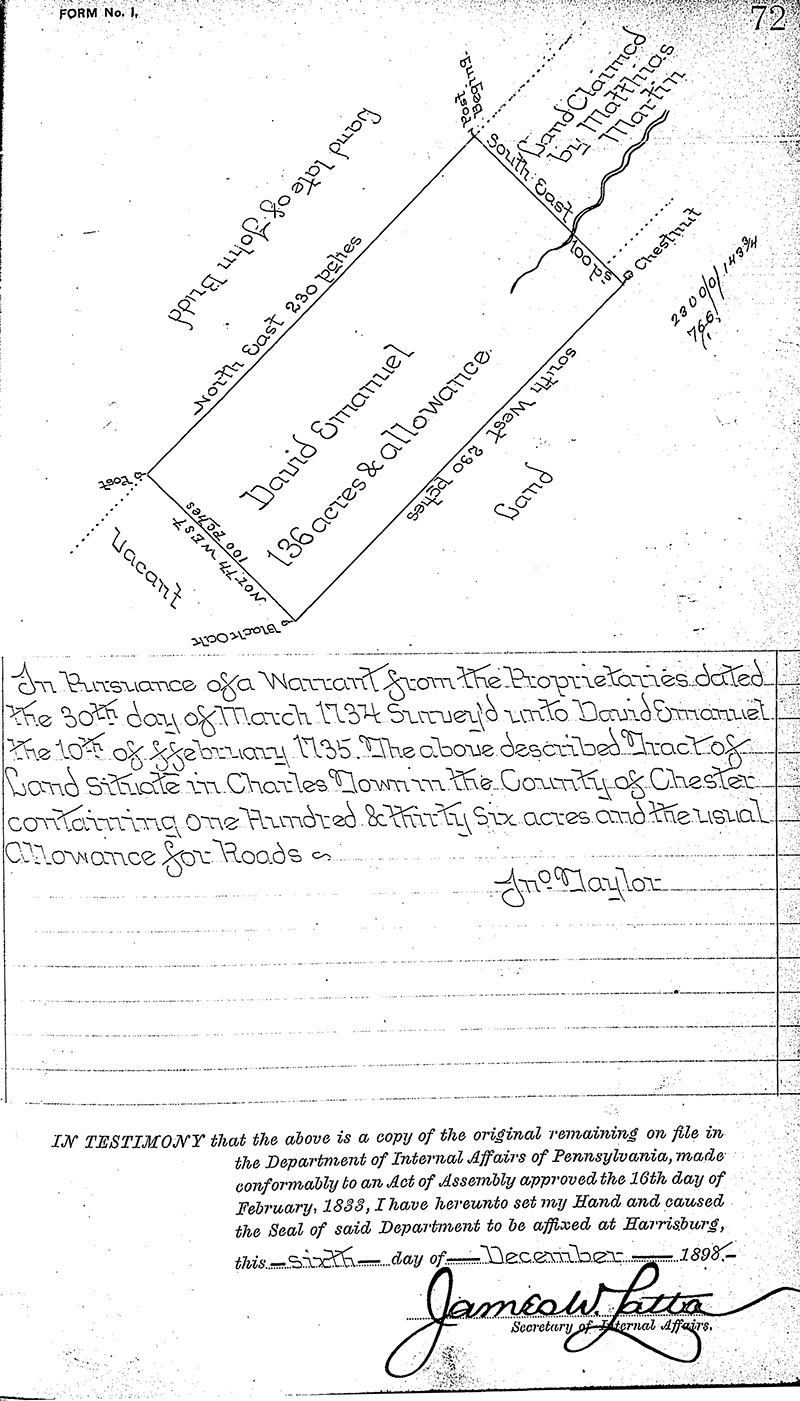 FORM No. 1,
72
Post
Beging.
Land Claimed
by Matthias
Martin
Land late of John Budd
South East
100 ps.
Chestnut
North East 230 pches
2300/0/143 3/4
766
David Emanuel
136 acres & allowance.
South West 230 pches
Land
Post
Vacant
North West
100 pches
Black Oak
In Pursuance of a Warrant from the Proprietaries dated
the 30th day of March 1734 Survey'd unto David Emanuel
the 10th of ffebruary 1735. The above described Tract of
Land Situate in Charles Town in the County of Chester
containing one Hundred & thirty Six acres and the usual
Allowance for Roads
Jno Taylor
IN TESTIMONY that the above is a copy of the original remaining on file in
the Department of Internal Affairs of Pennsylvania, made
conformably to an Act of Assembly approved the 16th day of
February, 1833, I have hereunto set my Hand and caused
the Seal of said Department to be affixed at Harrisburg,
this sixth day of December 1898.
James W. Latta
Secretary of Internal Affairs.